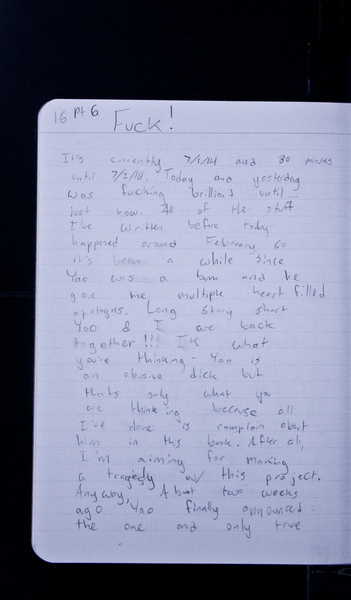 16 pt 6
Fuck!
It's currently 7/1/14 and 30 minutes
until 7/2/14. Today and yesterday
was fucking brilliant until...
just now. All of the stuff
I've written before today
happened around February so
it's been a while since
Yao was a bum and he
gave me multiple heart filled
apologies. Long story short
Yao & I are back
together!!! IK what
you're thinking - Yao is
an abusive dick but
thats only what you
are thinking because all
I've done is complain about
him in this book. After all,
I'm aiming for making
a tragedy w/ this project.
Anyway, About two weeks
ago Yao finally announced
the one and only true